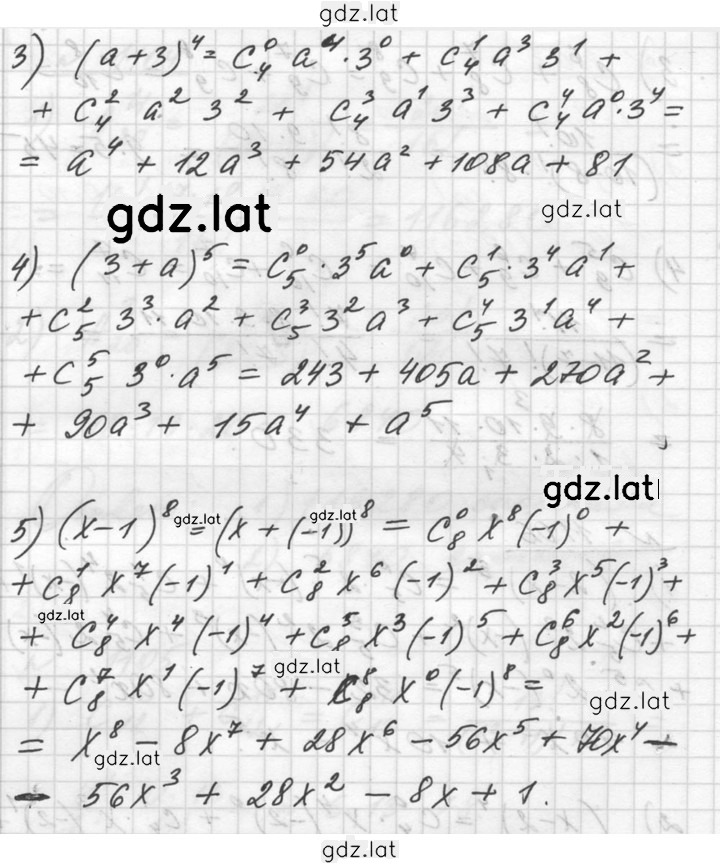 gdz.lat
3) (a+3)⁴ = C₄⁰ a⁴·3⁰ + C₄¹ a³ 3¹ +
+ C₄² a² 3² + C₄³ a¹ 3³ + C₄⁴ a⁰·3⁴ =
= a⁴ + 12a³ + 54a² + 108a + 81
gdz.lat gdz.lat
4) (3+a)⁵ = C₅⁰·3⁵a⁰ + C₅¹·3⁴a¹ +
+ C₅² 3³·a² + C₅³ 3²a³ + C₅⁴ 3¹a⁴ +
+ C₅⁵ 3⁰·a⁵ = 243 + 405a + 270a² +
+ 90a³ + 15a⁴ + a⁵
gdz.lat
5) (x-1)⁸ = (x+(-1))⁸ = C₈⁰ x⁸(-1)⁰ +
gdz.lat gdz.lat
+ C₈¹ x⁷(-1)¹ + C₈² x⁶(-1)² + C₈³ x⁵(-1)³ +
gdz.lat
+ C₈⁴ x⁴(-1)⁴ + C₈⁵ x³(-1)⁵ + C₈⁶ x²(-1)⁶ +
gdz.lat
+ C₈⁷ x¹(-1)⁷ + C₈⁸ x⁰(-1)⁸ =
gdz.lat
= x⁸ - 8x⁷ + 28x⁶ - 56x⁵ + 70x⁴ -
gdz.lat
- 56x³ + 28x² - 8x + 1.
gdz.lat